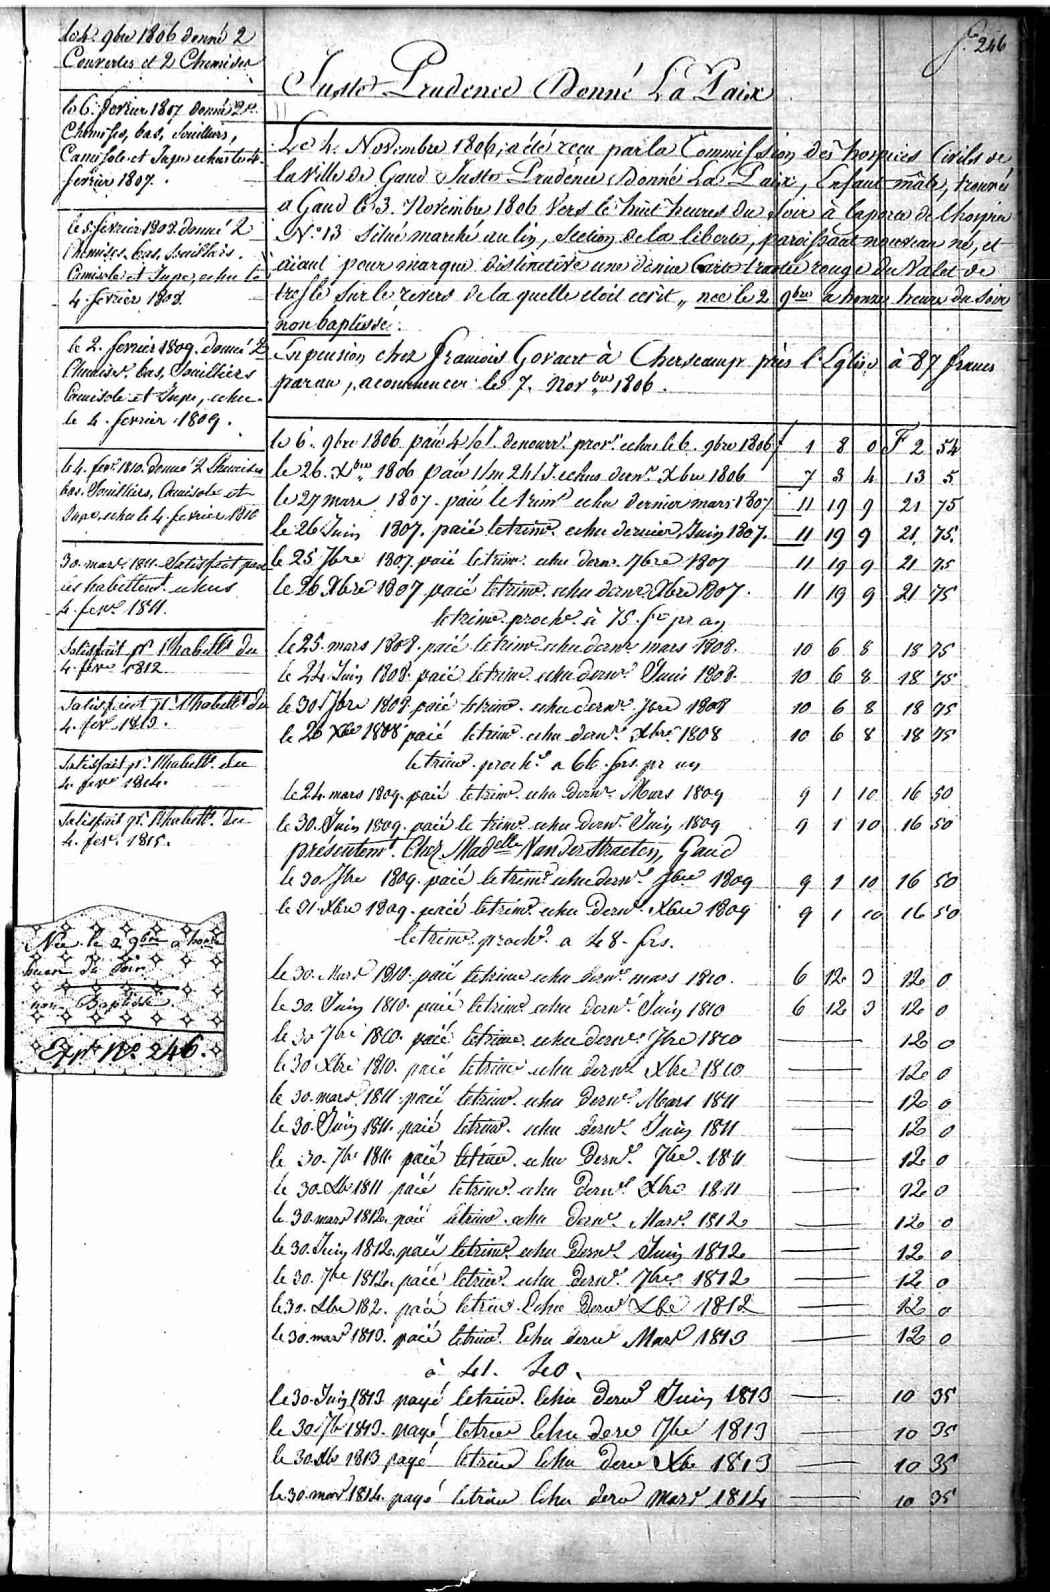 f. 246
Juste Prudence Donné La Paix
le 4. 9bre 1806 donné 2
Couvertes et 2 Chemises
le 6. fevrier 1807 donné 2
Chemises, bas, Souilliers,
Camisole et Jupe echus le 4
fevrier 1807.
le 5 fevrier 1808 donné 2
Chemises, bas, Souilliers,
Camisole et Jupe, echu le
4 fevrier 1808
le 2. fevrier 1809. donné 2
Chemises bas, Souilliers
Camisole et Jupe, echu
le 4. fevrier 1809.
le 4. fevr. 1810. donné 2 Chemises
bas, Souilliers, Camisole et
Jupe, echu le 4. fevrier 1810
30. mars 1811. Satisfait pour
les habillemts. echus
4. fevr. 1811.
Satisfait pr. l'habillt. du
4. fevr. 1812
Satisfait pr. l'habillt. du
4. fevr. 1813.
Satisfait pr. l'habillt. du
4. fevr. 1814.
Satisfait pr. l'habillt. du
4. fevr. 1815.
Née le 2 9bre a honze
heure du Soir
non Baptisée
Expt. No. 246.
Le 4. Novembre 1806, a été recu par la Commission des hospices Civils de
la Ville de Gand Juste Prudence Donné La Paix, Enfant mâle, trouvé
a Gand le 3. Novembre 1806 vers le huit heures du Soir à laporte de l'hospice
No. 13 Situé marché au lin, Section de la liberté, paroissant nouveau né, et
aiant pour marque distinctive une demie Carte tractée rouge du Valet de
trefle sur le revers de la quelle etoit ecrit „ nee le 2 9bre a honze heure du Soir
non baptissé.
En pension chez francois Govaert à Cherscamp près l'Eglise à 87 francs
par an, acommencer le 7. Novbre 1806.
le 6. 9bre 1806. paié 4 de nourr. prov. echus le 6. 9bre 1806 1 8 0 F 2 54
le 26. Xbre 1806 paié 1/m 24/J. echus dernr. Xbre 1806 7 3 4 13 5
le 27 mars 1807. paié le trimr. echu dernier mars 1807 11 19 9 21 75
le 26 Juin 1807. paié le trimr. echu dernier Juin 1807. 11 19 9 21 75.
le 25 7bre 1807. paié le trimr. echu dernr. 7bre 1807 11 19 9 21 75
le 26 Xbre 1807 paié le trimr. echu dernr. Xbre 1807. 11 19 9 21 75
le trimr. proche. à 75. frs pr an
le 25. mars 1808. paié le trimr. echu dernr. mars 1808. 10 6 8 18 75
le 24. Juin 1808. paié le trimr. echu dernr. Juin 1808. 10 6 8 18 75
le 30 7bre 1808. paié le trimr. echu dernr. 7bre 1808 10 6 8 18 75
le 26 Xbre 1808 paié le trimr. echu dernr. Xbre. 1808 10 6 8 18 75
le trimr. proche. a 66. frs. pr an
le 24. mars 1809. paié le trimr. echu dernr. Mars 1809 9 1 10 16 50
le 30. Juin 1809. paié le trimr. echu dernr. Juin 1809 9 1 10 16 50
présentemt. Chez Madelle Vander Straeten, Gand
le 30 7bre 1809. paié le trimr. echu dernr. 7bre 1809 9 1 10 16 50
le 31. Xbre 1809. paié le trimr. echu dernr. Xbre 1809 9 1 10 16 50
le trimr. proche. a 48. frs.
le 30. Mars 1810. paié le trimr echu dernr. mars 1810. 6 12 3 12 0
le 30. Juin 1810. paié le trimr echu dernr. Juin 1810 6 12 3 12 0
le 30 7bre 1810. paié le trimr echu dernr. 7bre 1810 — 12 0
le 30 Xbre 1810. paié le trimr echu dernr. Xbre 1810 — 12 0
le 30. mars. 1811. paié le trimr. echu dernr. Mars 1811 — 12 0
le 30. Juin 1811. paié le trimr. echu dernr. Juin 1811 — 12 0
le 30. 7bre 1811. paié le trimr. echu dernr. 7bre. 1811 — 12 0
le 30. Xbre 1811 paié le trimr. echu dernr. Xbre 1811 — 12 0
le 30. mars 1812. paié le trimr. echu dernr. Mars. 1812 — 12 0
le 30. Juin 1812. paié le trimr. echu dernr. Juin 1812 — 12 0
le 30. 7bre 1812. paié le trimr. echu dernr. 7bre 1812 — 12 0
le 30. Xbre 182. paié le trimr. Echu dernr Xbre 1812 — 12 0
le 30. mars 1813. paié le trimr. Echu dernr Mars 1813 — 12 0
à 41. 40.
le 30. Juin 1813 payé le trimr. Echu dernr Juin 1813 — 10 35
le 30. 7bre 1813. payé le trimr Echu dernr 7bre 1813 — 10 35
le 30. Xbre 1813 payé le trimr Echu dernr Xbre 1813 — 10 35
le 30. mars 1814. payé le trimr Echu dernr Mars 1814 — 10 35